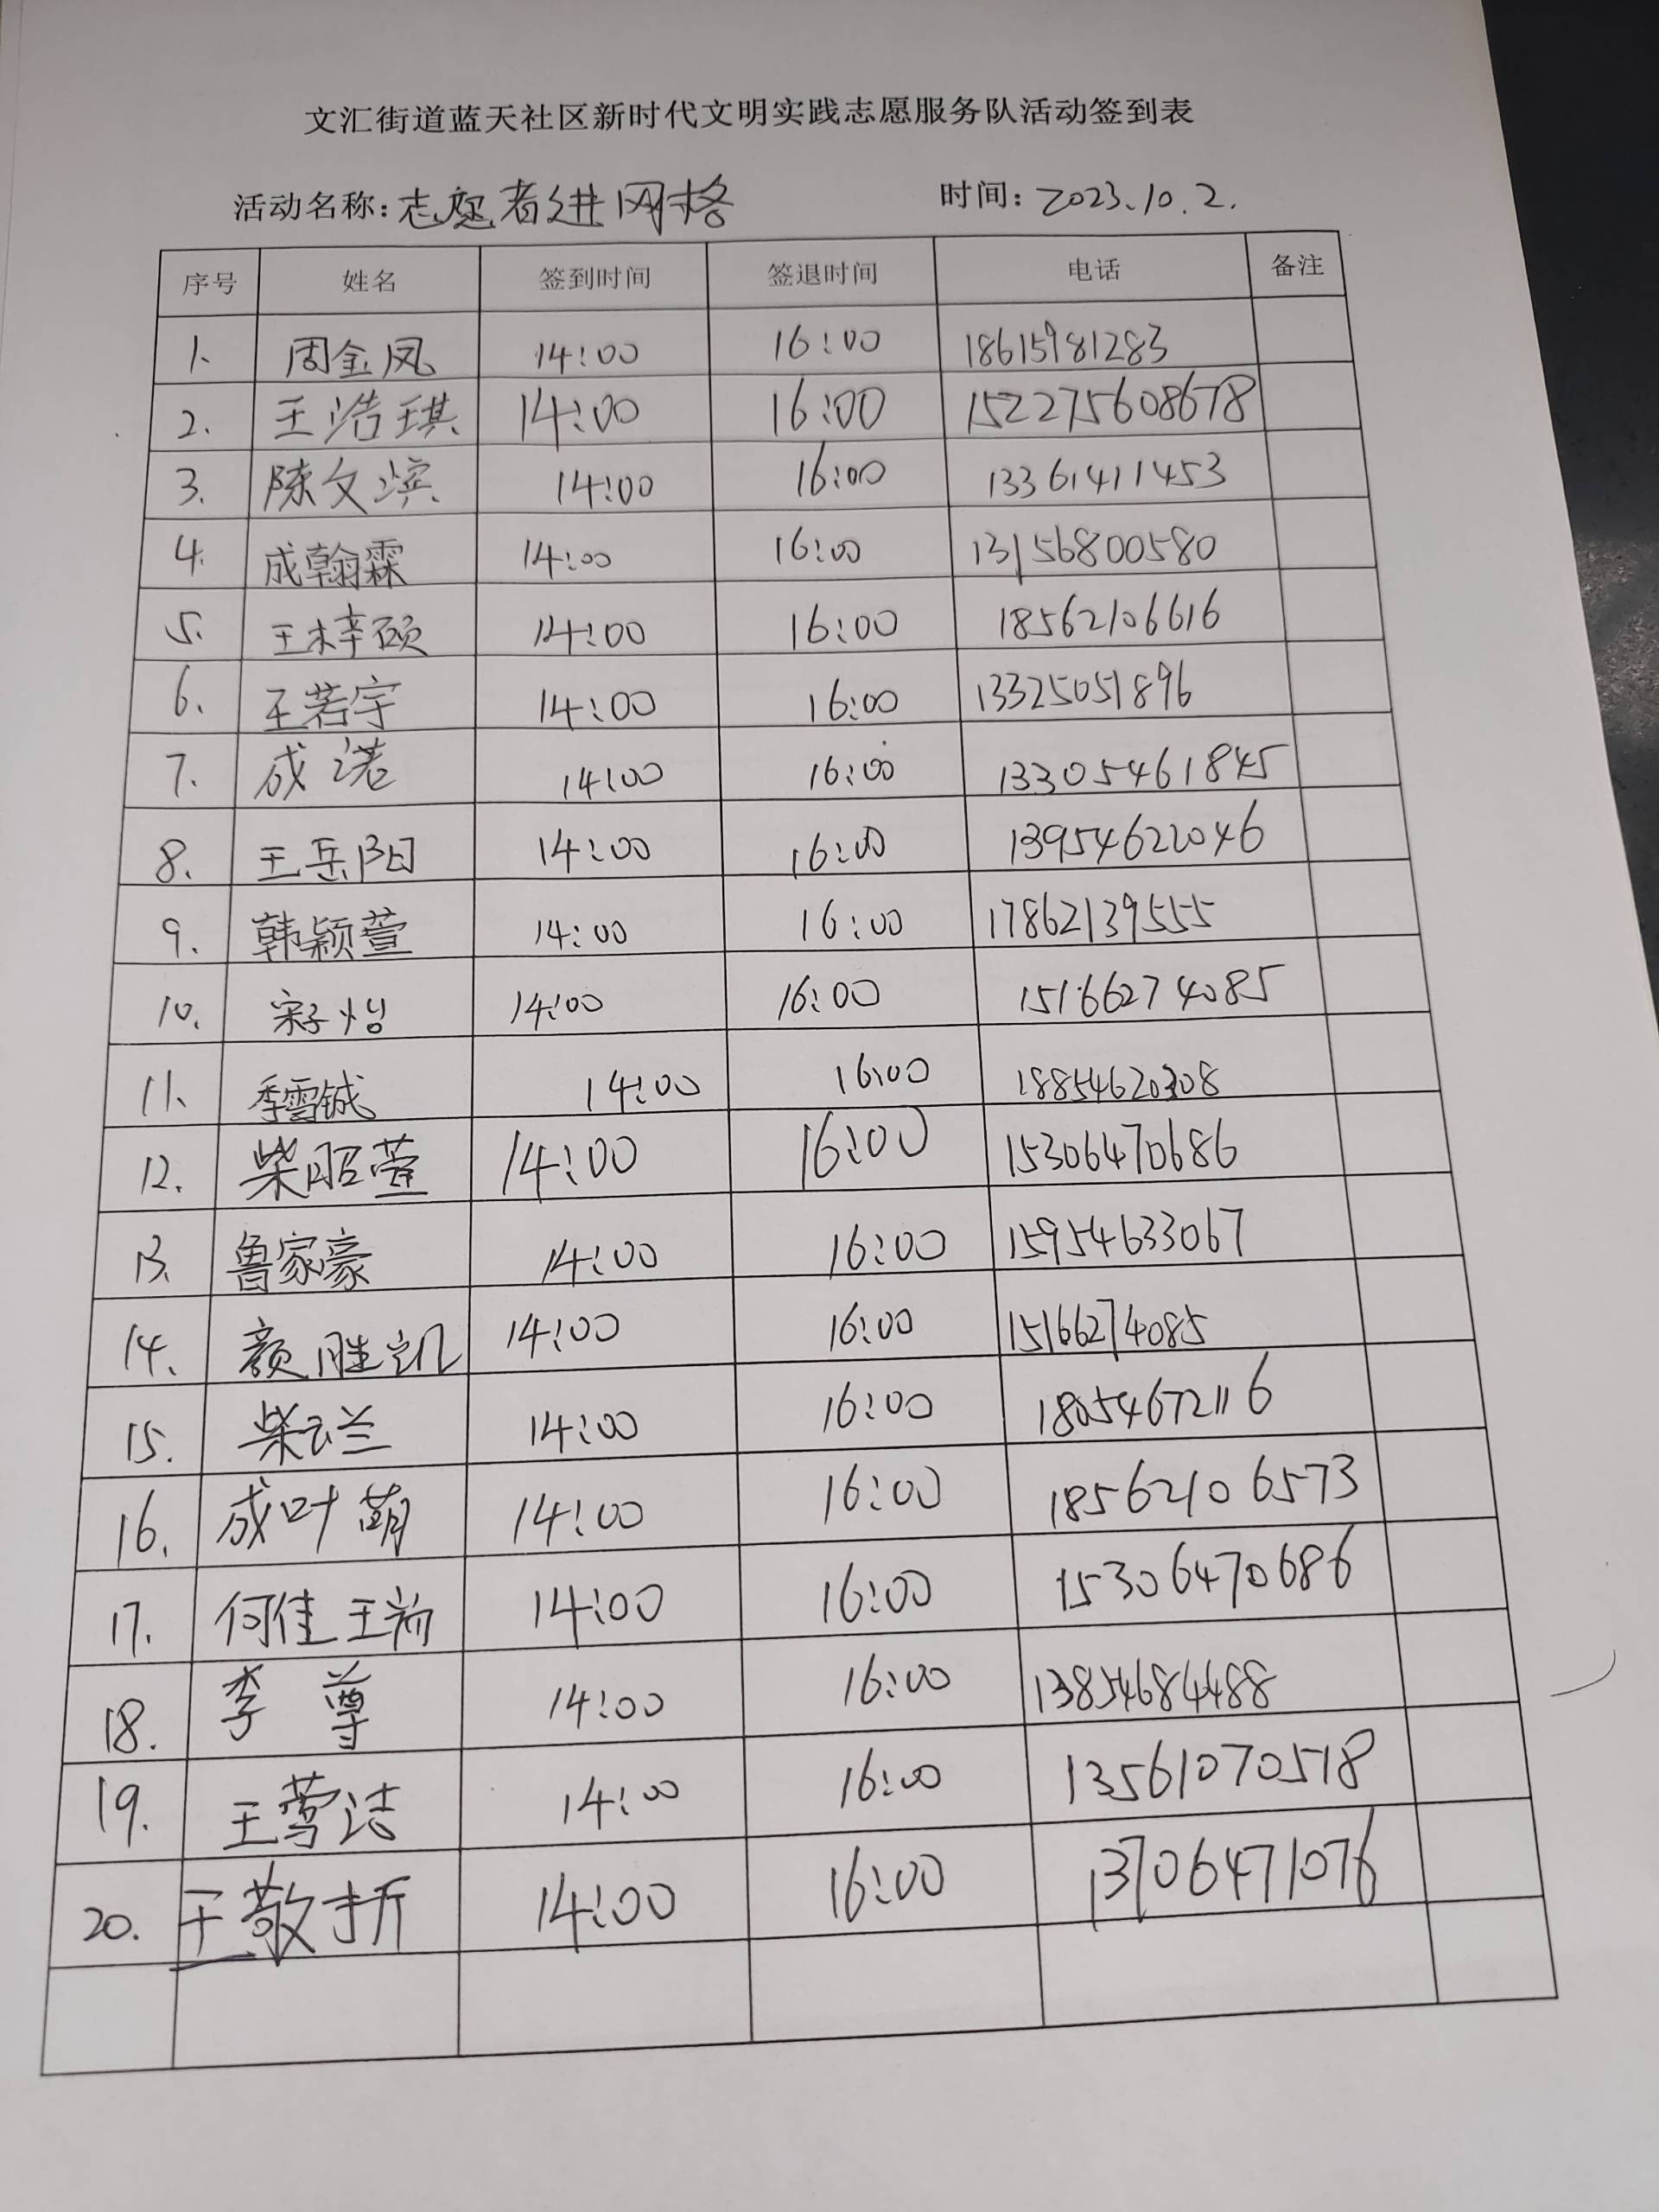 文汇街道蓝天社区新时代文明实践志愿服务队活动签到表
活动名称:志愿者进网格 时间:2023.10.2.
序号 姓名 签到时间 签退时间 电话 备注
1. 周金凤 14:00 16:00 18615981283
2. 王浩琪 14:00 16:00 152275608678
3. 陈文滨 14:00 16:00 13361411453
4. 成翰霖 14:00 16:00 13156800580
5. 王梓硕 14:00 16:00 18562106616
6. 王若宇 14:00 16:00 13325051896
7. 成诺 14:00 16:00 13305461845
8. 王岳阳 14:00 16:00 13954622046
9. 韩颖萱 14:00 16:00 17862139555
10. 宋子怡 14:00 16:00 15166274085
11. 季雪铖 14:00 16:00 18854620308
12. 柴昭萱 14:00 16:00 15306470686
13. 鲁家豪 14:00 16:00 15954633067
14. 颜胜凯 14:00 16:00 15166274085
15. 柴云兰 14:00 16:00 18054672116
16. 成叶萌 14:00 16:00 18562106573
17. 何佳 14:00 16:00 15306470686
18. 李尊 14:00 16:00 13854684488
19. 王莺洁 14:00 16:00 13561070518
20. 王敬折 14:00 16:00 13706471076